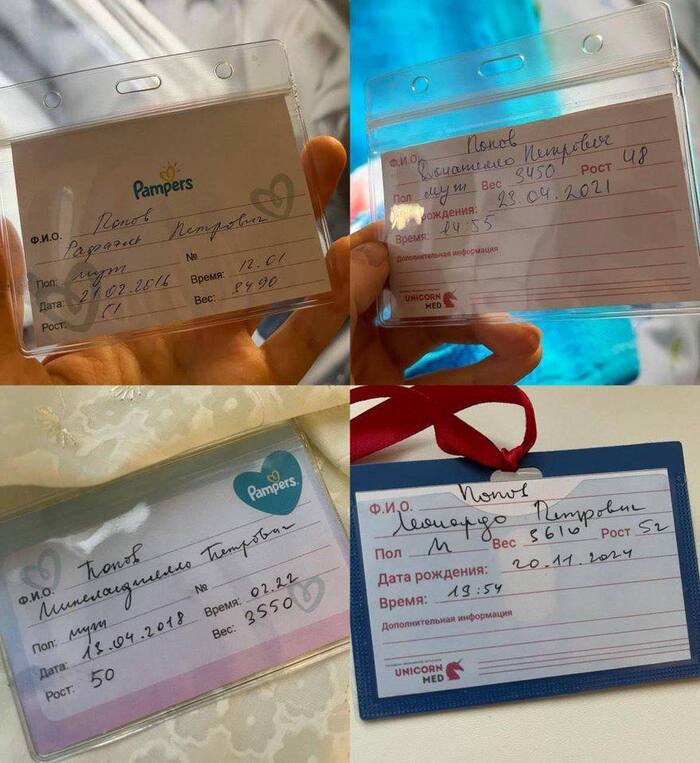 Pampers
Ф.И.О. Попов
Рафаэль Петрович
Пол: муж №
Дата: 21.02.2016 Время: 12.01
Рост: 51 Вес: 3490
Попов
Ф.И.О. Донателло Петрович
Пол муж Вес 3450 Рост 48
рождения: 23.04.2021
Время: 14:55
Дополнительная информация
UNICORN
MED
Pampers
Ф.И.О. Попов
Микеланджелло Петрович
Пол: муж №
Дата: 13.04.2018 Время: 02.22
Рост: 50 Вес: 3550
Попов
Ф.И.О. Леонардо Петрович
Пол М Вес 3610 Рост 52
Дата рождения: 20.11.2024
Время: 13:54
Дополнительная информация
UNICORN
MED